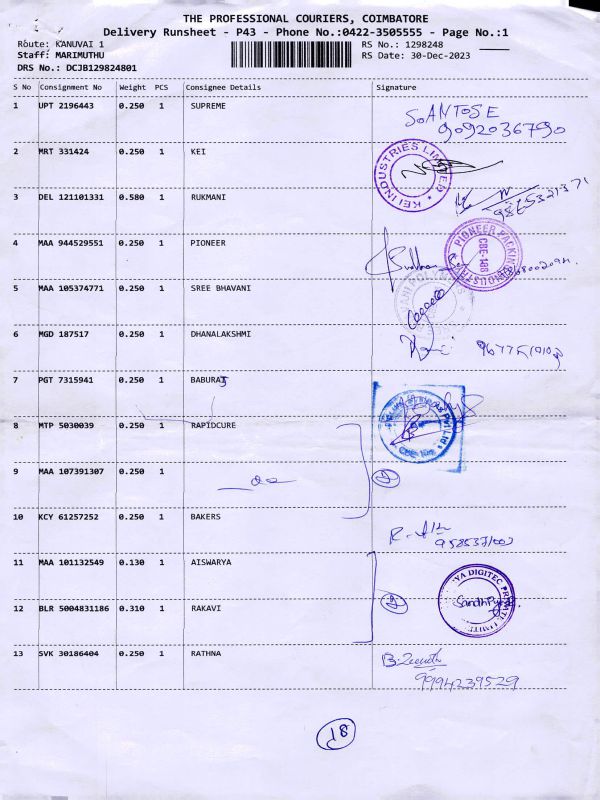 THE PROFESSIONAL COURIERS, COIMBATORE
Delivery Runsheet - P43 - Phone No.:0422-3505555 - Page No.:1
Route: KANUVAI 1 RS No.: 1298248
Staff: MARIMUTHU RS Date: 30-Dec-2023
DRS No.: DCJB129824801
S No Consignment No Weight PCS Consignee Details Signature
1 UPT 2196443 0.250 1 SUPREME
SOANTOSE
9092036790
2 MRT 331424 0.250 1 KEI
KEI INDUSTRIES LIMITED
3 DEL 121101331 0.580 1 RUKMANI
9865321371
4 MAA 944529551 0.250 1 PIONEER
PIONEER PACKING INDUSTRY
CBE-108
5 MAA 105374771 0.250 1 SREE BHAVANI
6 MGD 187517 0.250 1 DHANALAKSHMI
7 PGT 7315941 0.250 1 BABURAJ
8 MTP 5030039 0.250 1 RAPIDCURE
9 MAA 107391307 0.250 1
10 KCY 61257252 0.250 1 BAKERS
11 MAA 101132549 0.130 1 AISWARYA
DIGITEC PRIVATE LIMITED
12 BLR 5004831186 0.310 1 RAKAVI
13 SVK 30186404 0.250 1 RATHNA
9994239529